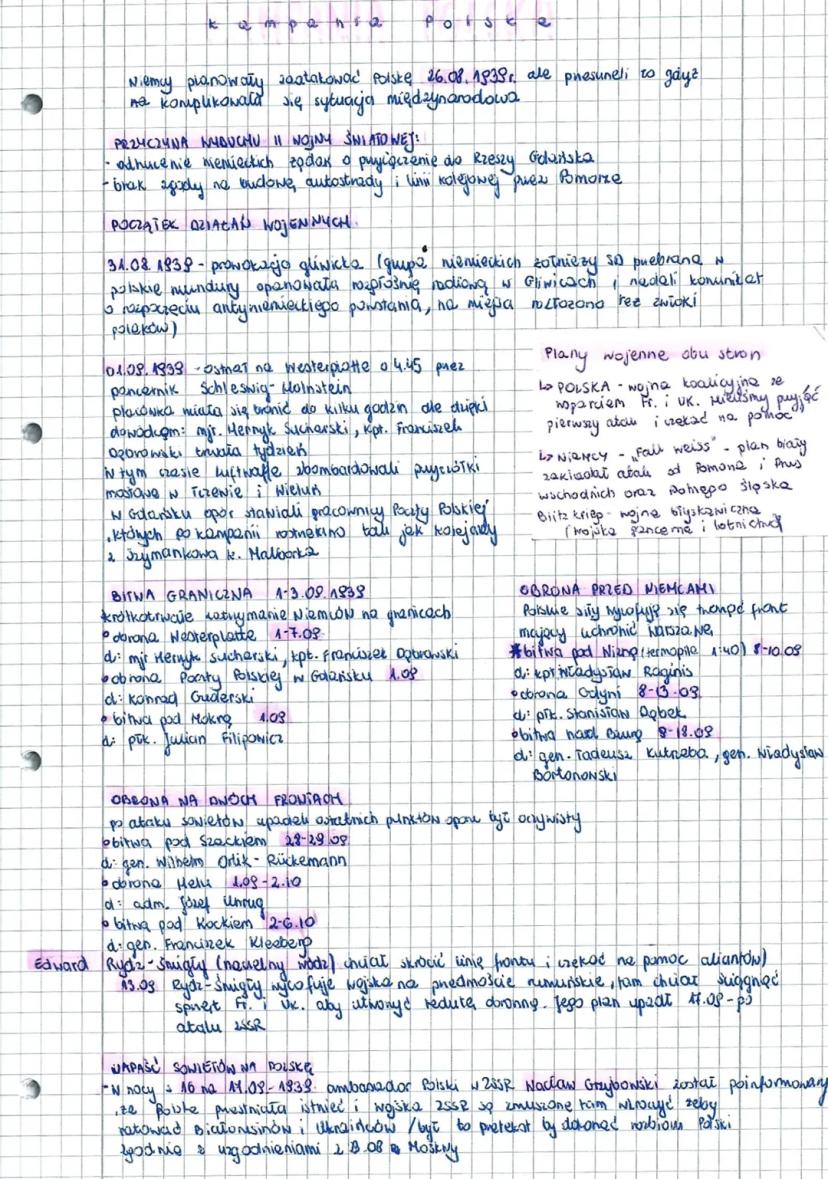 Kampania Polska
Niemcy planowały zaatakować Polskę 26.08.1939r. ale przesuneli to gdyż
na komplikowała się sytuacja międzynarodowa
PRZYCZYNA WYBUCHU II WOJNY ŚWIATOWEJ:
- odrzucenie niemieckich żądań o przyłączenie do Rzeszy Gdańska
- brak zgody na budowę autostrady i linii kolejowej przez Pomorze
POCZĄTEK DZIAŁAŃ WOJENNYCH
31.08.1939 - prowokacja gliwicka (grupa niemieckich żołnierzy SD przebrana w
polskie mundury opanowała rozgłośnię radiową w Gliwicach i nadali komunikat
o rozpoczęciu antyniemieckiego powstania, na miejscu rozłożono też zwłoki
polaków)
01.09.1939 - ostrzał na Westerplatte o 4.45 przez
pancernik Schleswig-Holnstein
placówka miała się bronić do kilku godzin ale dzięki
dowódcom: mjr. Henryk Sucharski, kpt. Franciszek
Dąbrowski trwała tydzień
W tym czasie luftwaffe zbombardowali przyczółki
mostowe w Tczewie i Wieluń
W Gdańsku opór stawiali pracownicy Poczty Polskiej
, których po kampanii rozstrzelano tak jak kolejarzy
z Szymankowa k. Malborka
Plany wojenne obu stron
↳ POLSKA - wojna koalicyjna ze
wsparciem Fr. i UK. Mieliśmy przyjąć
pierwszy atak i czekać na pomoc
↳ NIEMCY - "Fall weiss" - plan biały
zakładał atak od Pomorza i Prus
wschodnich oraz Górnego Śląska
Blitzkrieg - wojna błyskawiczna
(wojska pancerne i lotnictwo)
BITWA GRANICZNA 1-3.09.1939
krótkotrwałe zatrzymanie Niemców na granicach
• obrona Westerplatte 1-7.09
d: mjr Henryk Sucharski, kpt. Franciszek Dąbrowski
• obrona Poczty Polskiej w Gdańsku 1.09
d: Konrad Guderski
• bitwa pod Mokrą 1.09
d: płk. Julian Filipowicz
OBRONA PRZED NIEMCAMI
Polskie siły wycofują się tworząc front
mający uchronić Warszawę
* bitwa pod Wizną (termopile 1:40) 8-10.09
d: kpt Władysław Raginis
• obrona Gdyni 8-13.09
d: płk. Stanisław Dąbek
• bitwa nad Bzurą 9-18.09
d: gen. Tadeusz Kutrzeba, gen. Władysław
Bortonowski
OBRONA NA DWÓCH FRONTACH
po ataku sowietów upadek ostatnich punktów oporu był oczywisty
• bitwa pod Szackiem 28-29.09
d: gen. Wilhelm Orlik-Rückemann
• obrona Helu 1.09-2.10
d: adm. Józef Unrug
• bitwa pod Kockiem 2-6.10
d: gen. Franciszek Kleeberg
Edward Rydz-Śmigły (naczelny wódz) chciał skrócić linię frontu i czekać na pomoc aliantów)
13.09 Rydz-Śmigły wycofuje wojska na przedmoście rumuńskie, tam chciał ściągnąć
sprzęt Fr. i UK. aby utworzyć redutę obronną. Jego plan upadł 17.09 - po
ataku ZSSR
NAPAŚĆ SOWIETÓW NA POLSKĘ
- W nocy z 16 na 17.09.1939 ambasador Polski w ZSSR Wacław Grzybowski został poinformowany
, że Polska przestała istnieć i wojska ZSSR są zmuszone tam wkroczyć żeby
ratować Białorusinów i Ukraińców / był to pretekst by dokonać rozbioru Polski
zgodnie z uzgodnieniami z 23.08 Moskwy